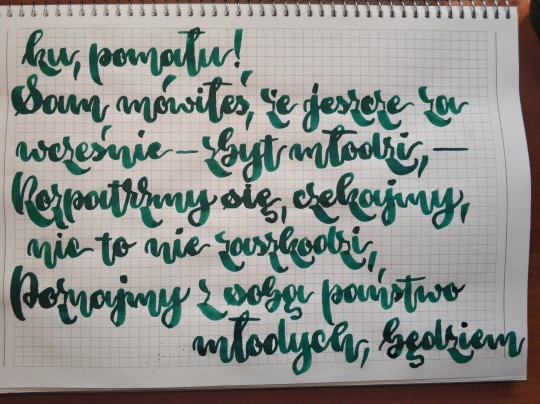 ku, pomału!
Sam mówiłeś, że jeszcze za
wcześnie – zbyt młodzi, –
Rozpatrzmy się, czekajmy,
nic to nie zaszkodzi,
Poznajmy z sobą państwo
młodych, będziem